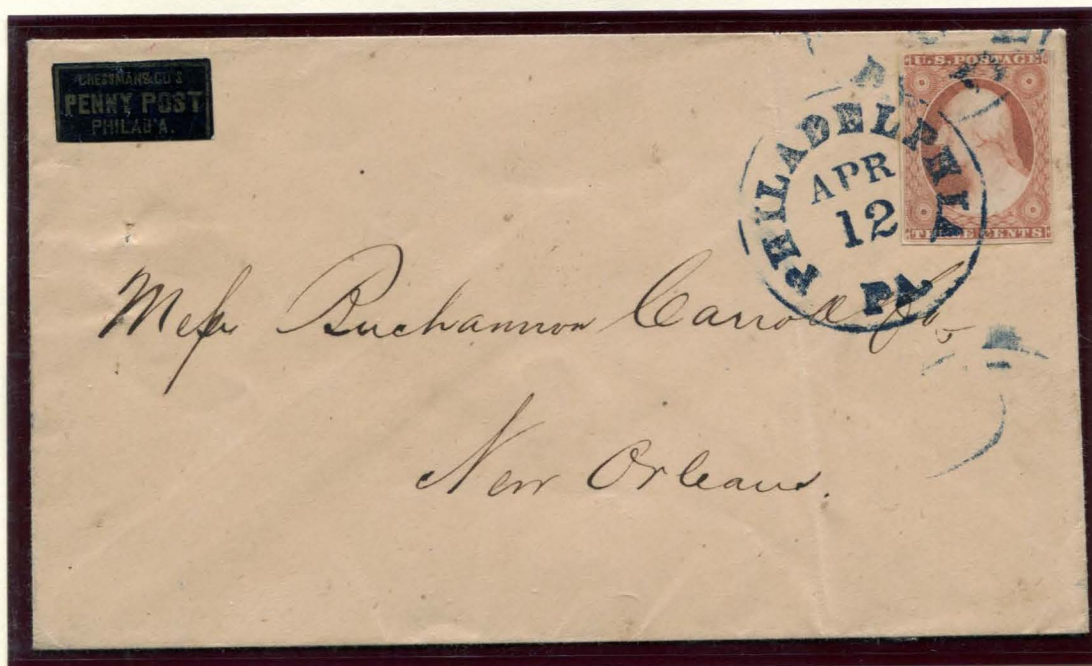 CRESSMAN & CO'S
PENNY POST
PHILAD'A.
U.S. POSTAGE
THREE CENTS
PHILADELPHIA
APR
12
PA.
Mess Buchannon Carroll & Co
New Orleans.